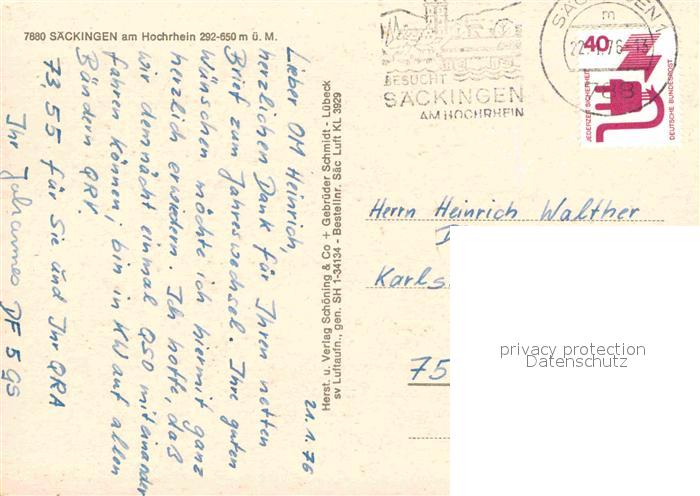 7880 SÄCKINGEN am Hochrhein 292-650 m ü. M.
21.1.76
Lieber OM Heinrich,
herzlichen Dank für Ihren netten
Brief zum Jahreswechsel. Ihre guten
Wünschen möchte ich hiermit ganz
herzlich erwiedern. Ich hoffe, daß
wir demnächst einmal QSO miteinander
fahren können, bin in KW auf allen
Bändern QRV.
73, 55 für Sie und Ihr QRA
Ihr Johannes DF 5 GS
Herst. u. Verlag Schöning & Co + Gebrüder Schmidt - Lübeck
sv Luftaufn., gen. SH 1-34134 - Bestellnr. Säc Luft KL 3929
BESUCHT
SÄCKINGEN
AM HOCHRHEIN
SÄCKINGEN 1
m
22.-1.76-13
788
40
JEDERZEIT SICHERHEIT
DEUTSCHE BUNDESPOST
Herrn Heinrich Walther
Karls
75
privacy protection
Datenschutz